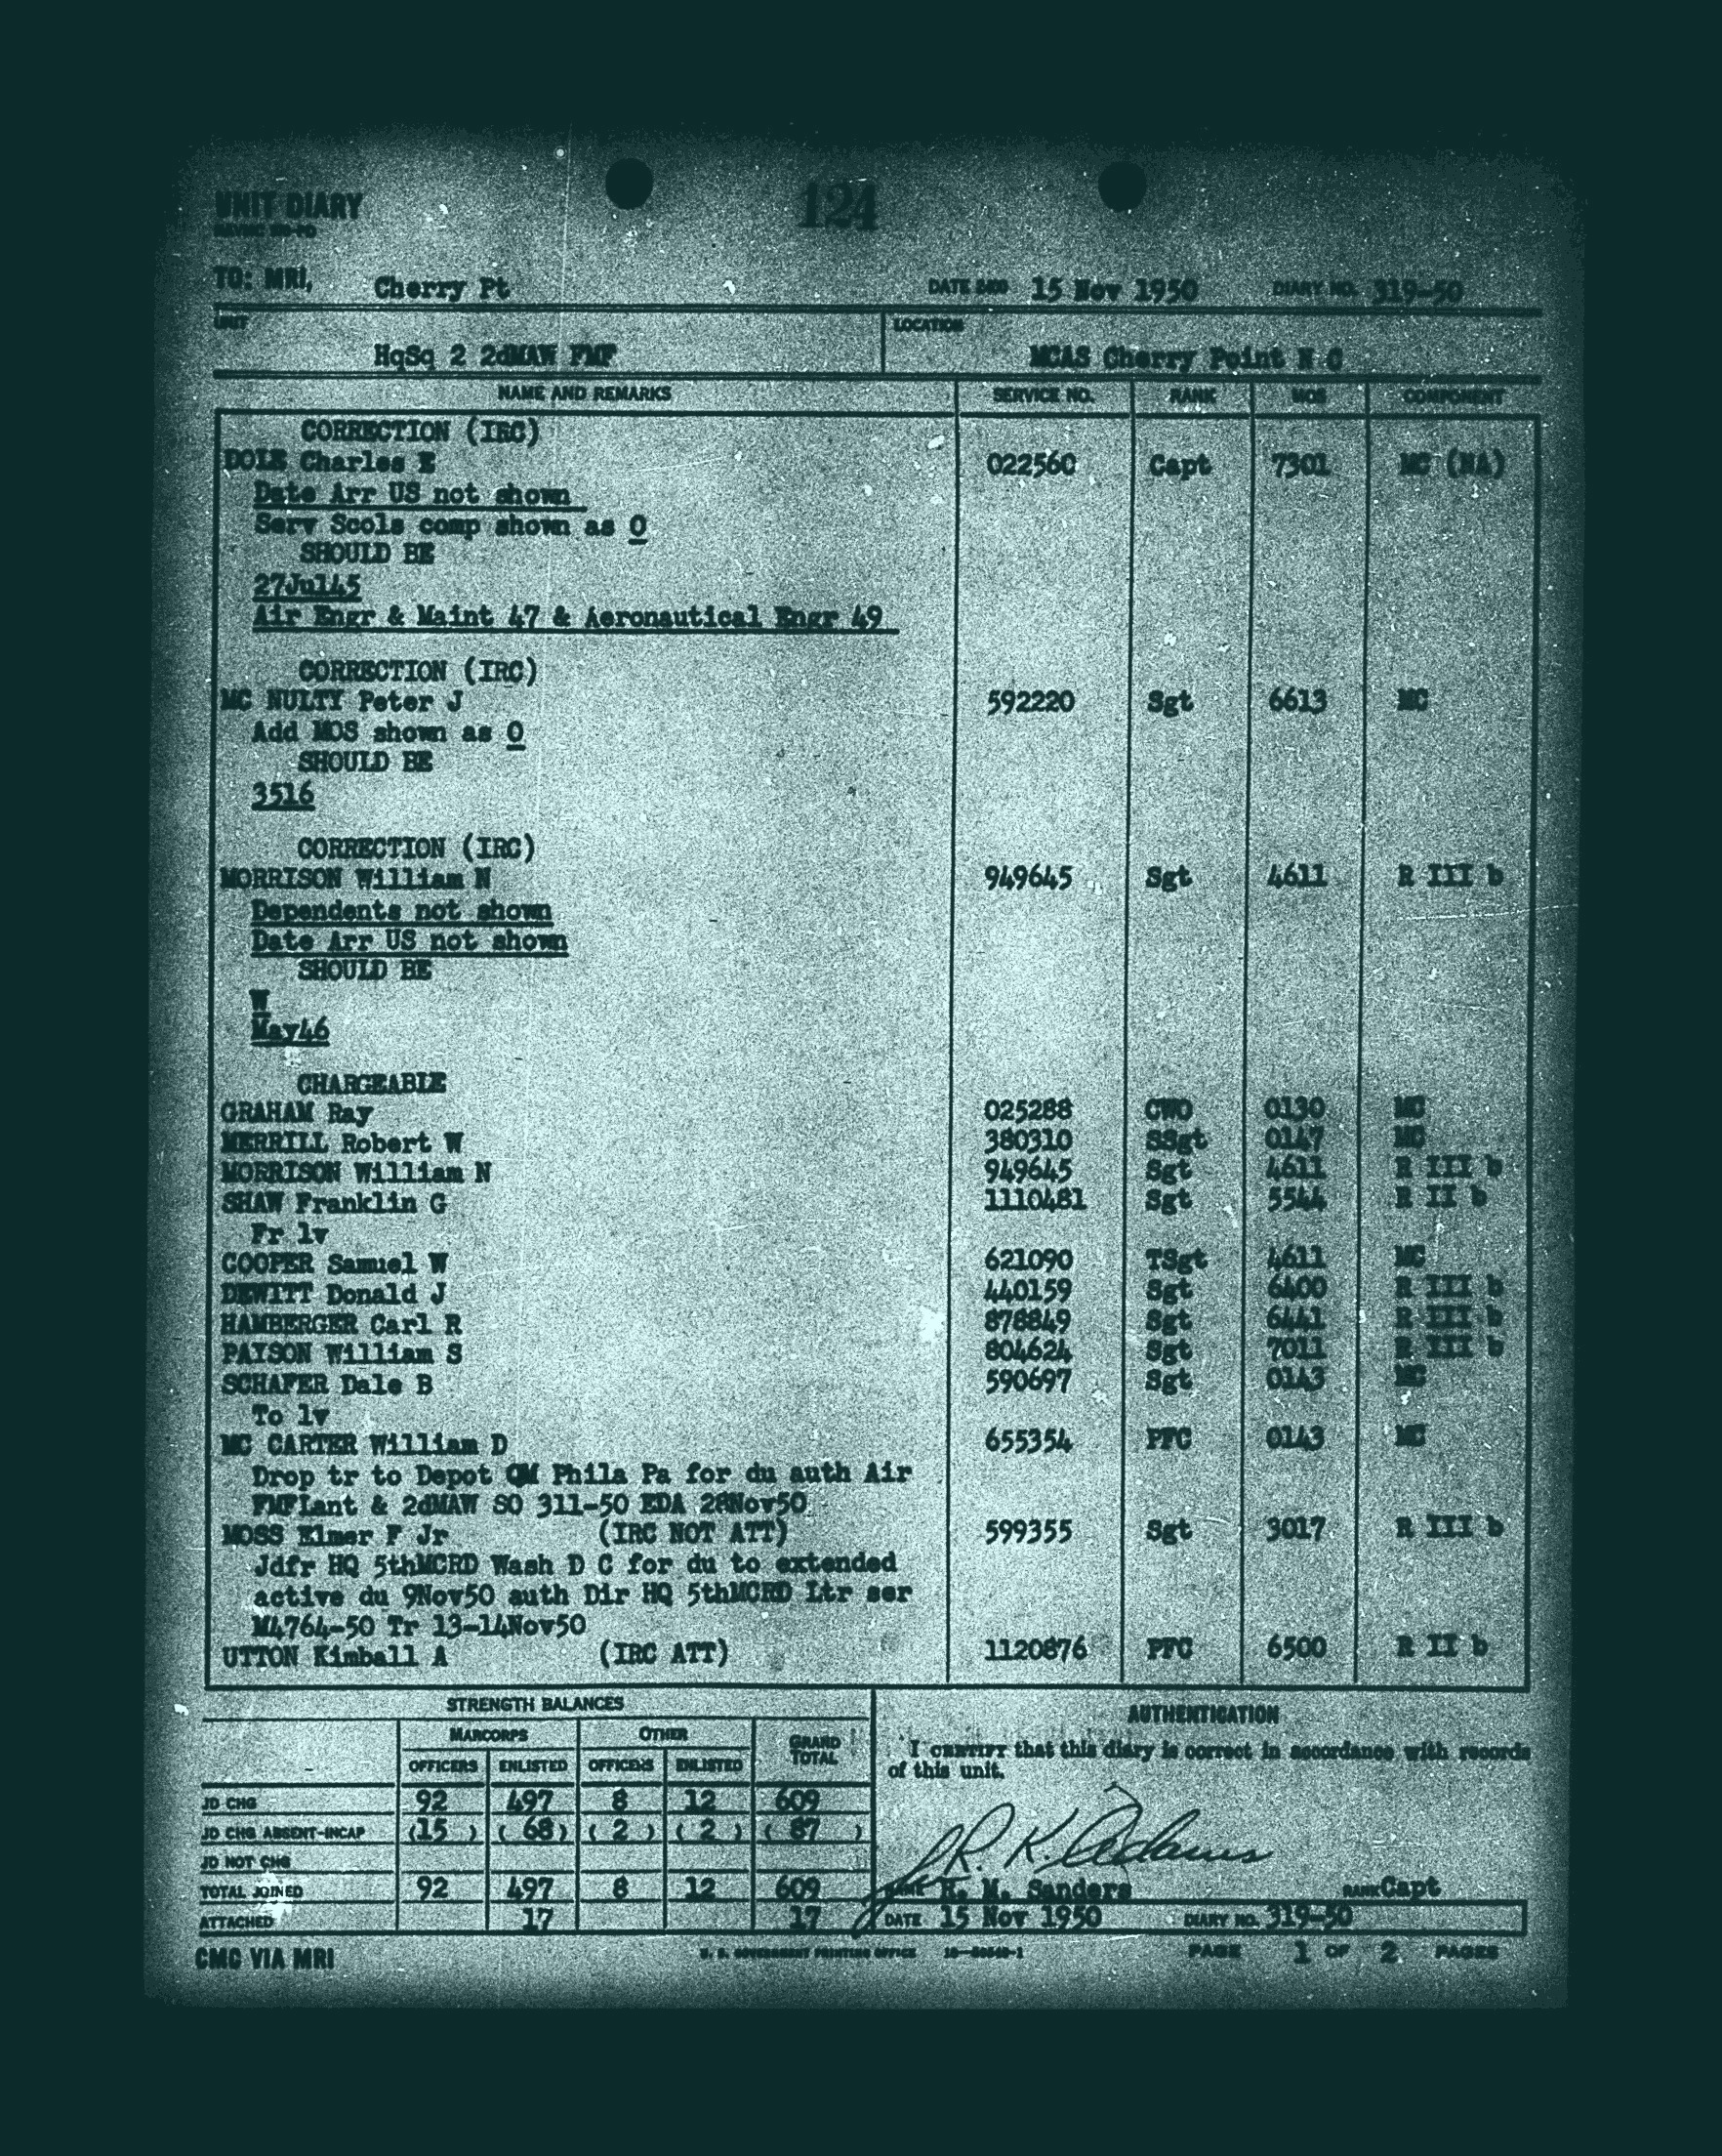 124
UNIT DIARY
TO: MRI, Cherry Pt DATE 15 Nov 1950 DIARY NO. 319-50
UNIT LOCATION
HqSq 2 2dMAW FMF MCAS Cherry Point N C
NAME AND REMARKS SERVICE NO. RANK MOS COMPONENT
CORRECTION (IRC)
DOLE Charles E 022560 Capt 7301 MC (NA)
Date Arr US not shown
Serv Scols comp shown as 0
SHOULD BE
27Jul45
Air Engr & Maint 47 & Aeronautical Engr 49
CORRECTION (IRC)
MC NULTY Peter J 592220 Sgt 6613 MC
Add MOS shown as 0
SHOULD BE
3516
CORRECTION (IRC)
MORRISON William N 949645 Sgt 4611 R III b
Dependents not shown
Date Arr US not shown
SHOULD BE
W
May46
CHARGEABLE
GRAHAM Ray 025288 CWO 0130 MC
MERRILL Robert W 380310 SSgt 0147 MC
MORRISON William N 949645 Sgt 4611 R III b
SHAW Franklin G 1110481 Sgt 5544 R II b
Fr lv
COOPER Samuel W 621090 TSgt 4611 MC
DEWITT Donald J 440159 Sgt 6400 R III b
HAMBERGER Carl R 878849 Sgt 6441 R III b
PAYSON William S 804624 Sgt 7011 R III b
SCHAFER Dale B 590697 Sgt 0143 MC
To lv
MC CARTER William D 655354 PFC 0143 MC
Drop tr to Depot QM Phila Pa for du auth Air
FMFLant & 2dMAW SO 311-50 EDA 28Nov50
MOSS Elmer F Jr (IRC NOT ATT) 599355 Sgt 3017 R III b
Jdfr HQ 5thMCRD Wash D C for du to extended
active du 9Nov50 auth Dir HQ 5thMCRD Ltr ser
M4764-50 Tr 13-14Nov50
UTTON Kimball A (IRC ATT) 1120876 PFC 6500 R II b
STRENGTH BALANCES
MARCORPS OTHER GRAND TOTAL
OFFICERS ENLISTED OFFICERS ENLISTED
JD CHG 92 497 8 12 609
JD CHG ABSENT-INCAP (15) (68) (2) (2) (87)
JD NOT CHG
TOTAL JOINED 92 497 8 12 609
ATTACHED 17 17
AUTHENTICATION
I CERTIFY that this diary is correct in accordance with records
of this unit.
R. K. Adams
M. Sanders RANK Capt
DATE 15 Nov 1950 DIARY NO. 319-50
CMC VIA MRI
U. S. GOVERNMENT PRINTING OFFICE
PAGE 1 OF 2 PAGES